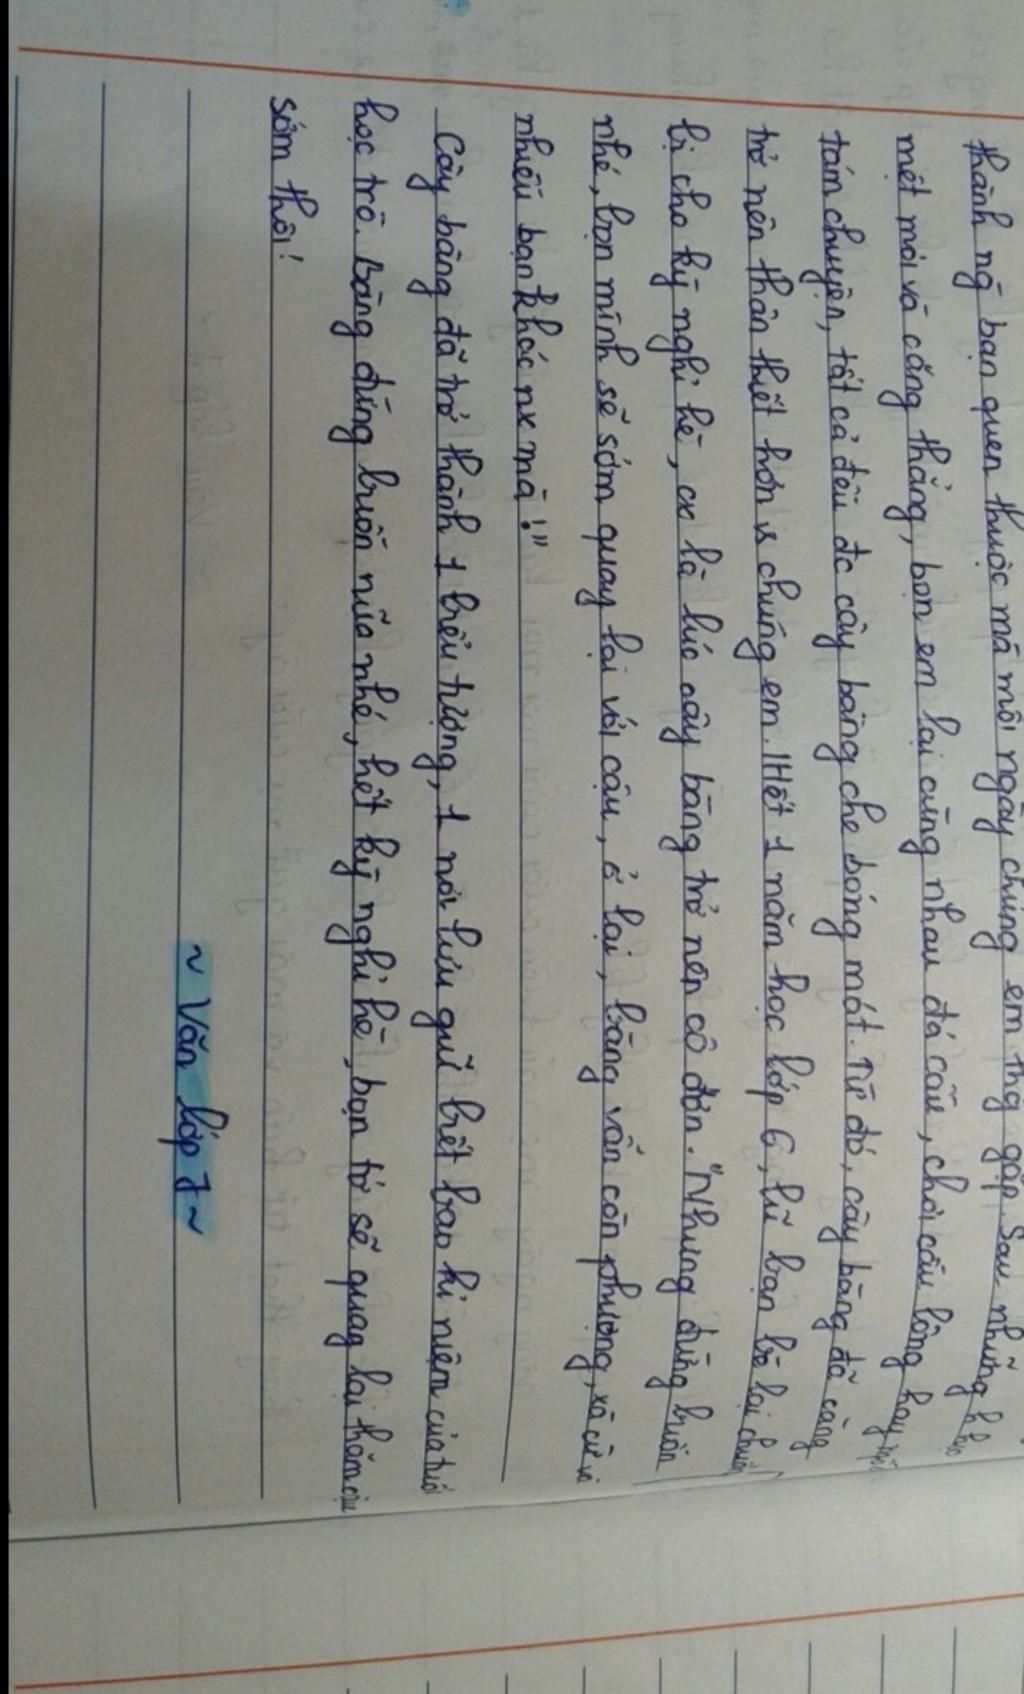 thành ng̃ bạn quen thuộc mà mỗi ngày chúng em thg gặp. Sau những h học
mệt mỏi và căng thẳng, bọn em lại cùng nhau đá cầu, chơi cầu lông hay
tám chuyện, tất cả đều đc cây bàng che bóng mát. Từ đó, cây bàng đã càng
trở nên thân thiết hơn vs chúng em. Hết 1 năm học lớp 6, lũ bạn lò lại chuẩn
bị cho kỳ nghỉ hè, cx là lúc cây bàng trở nên cô đơn. "Nhưng đừng buồn
nhé, bọn mình sẽ sớm quay lại với cậu, ở lại, bàng vẫn còn phượng, xà cừ và
nhiều bạn khác nx mà!"
Cây bàng đã trở thành 1 biểu tượng, 1 nơi lưu giữ biết bao kỉ niệm của tuổi
học trò. Bàng đừng buồn nữa nhé, hết kỳ nghỉ hè, bạn tớ sẽ quay lại thăm cậu
sớm thôi!
~ Văn lớp 7 ~